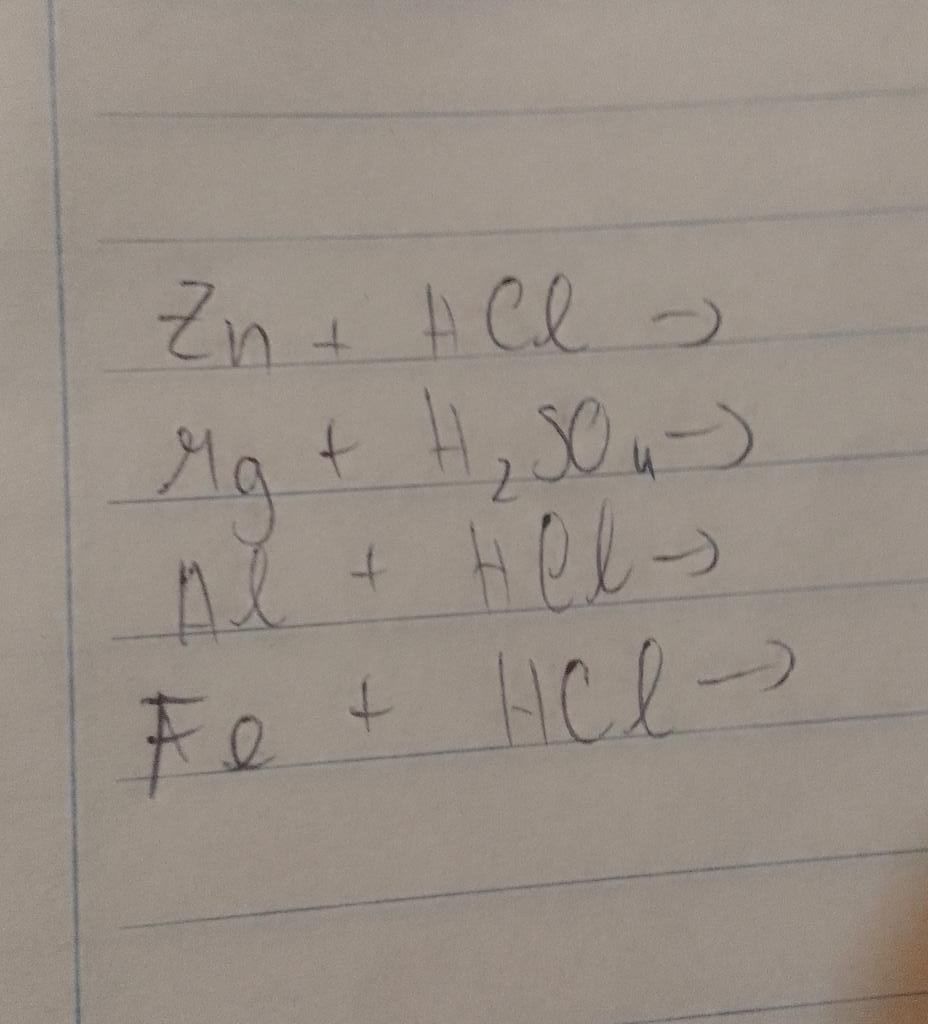 Zn + HCl →
Mg + H₂SO₄ →
Al + HCl →
Fe + HCl →